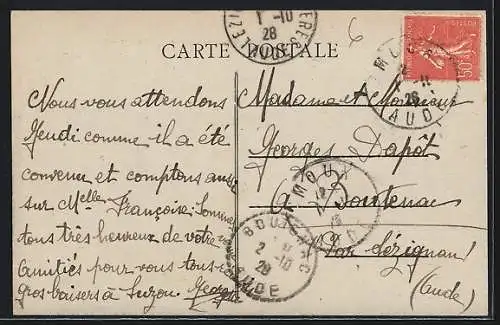 LEZI ERES
1 -10
28
AUDE
6
CARTE POSTALE
50c
MOUX
11
28
AUDE
Nous vous attendons
Jeudi comme il a été
convenu et comptons aussi
sur Melle Françoise. Sommes
tous très heureux de votre
Amitiés pour vous tous
gros baisers à Suzon. Georges
Madame et Monsieur
Georges Dapôt
à Fontenac
Par Lézignan
(Aude)
MOUX
BOUTENAC
2 -10
28
AUDE